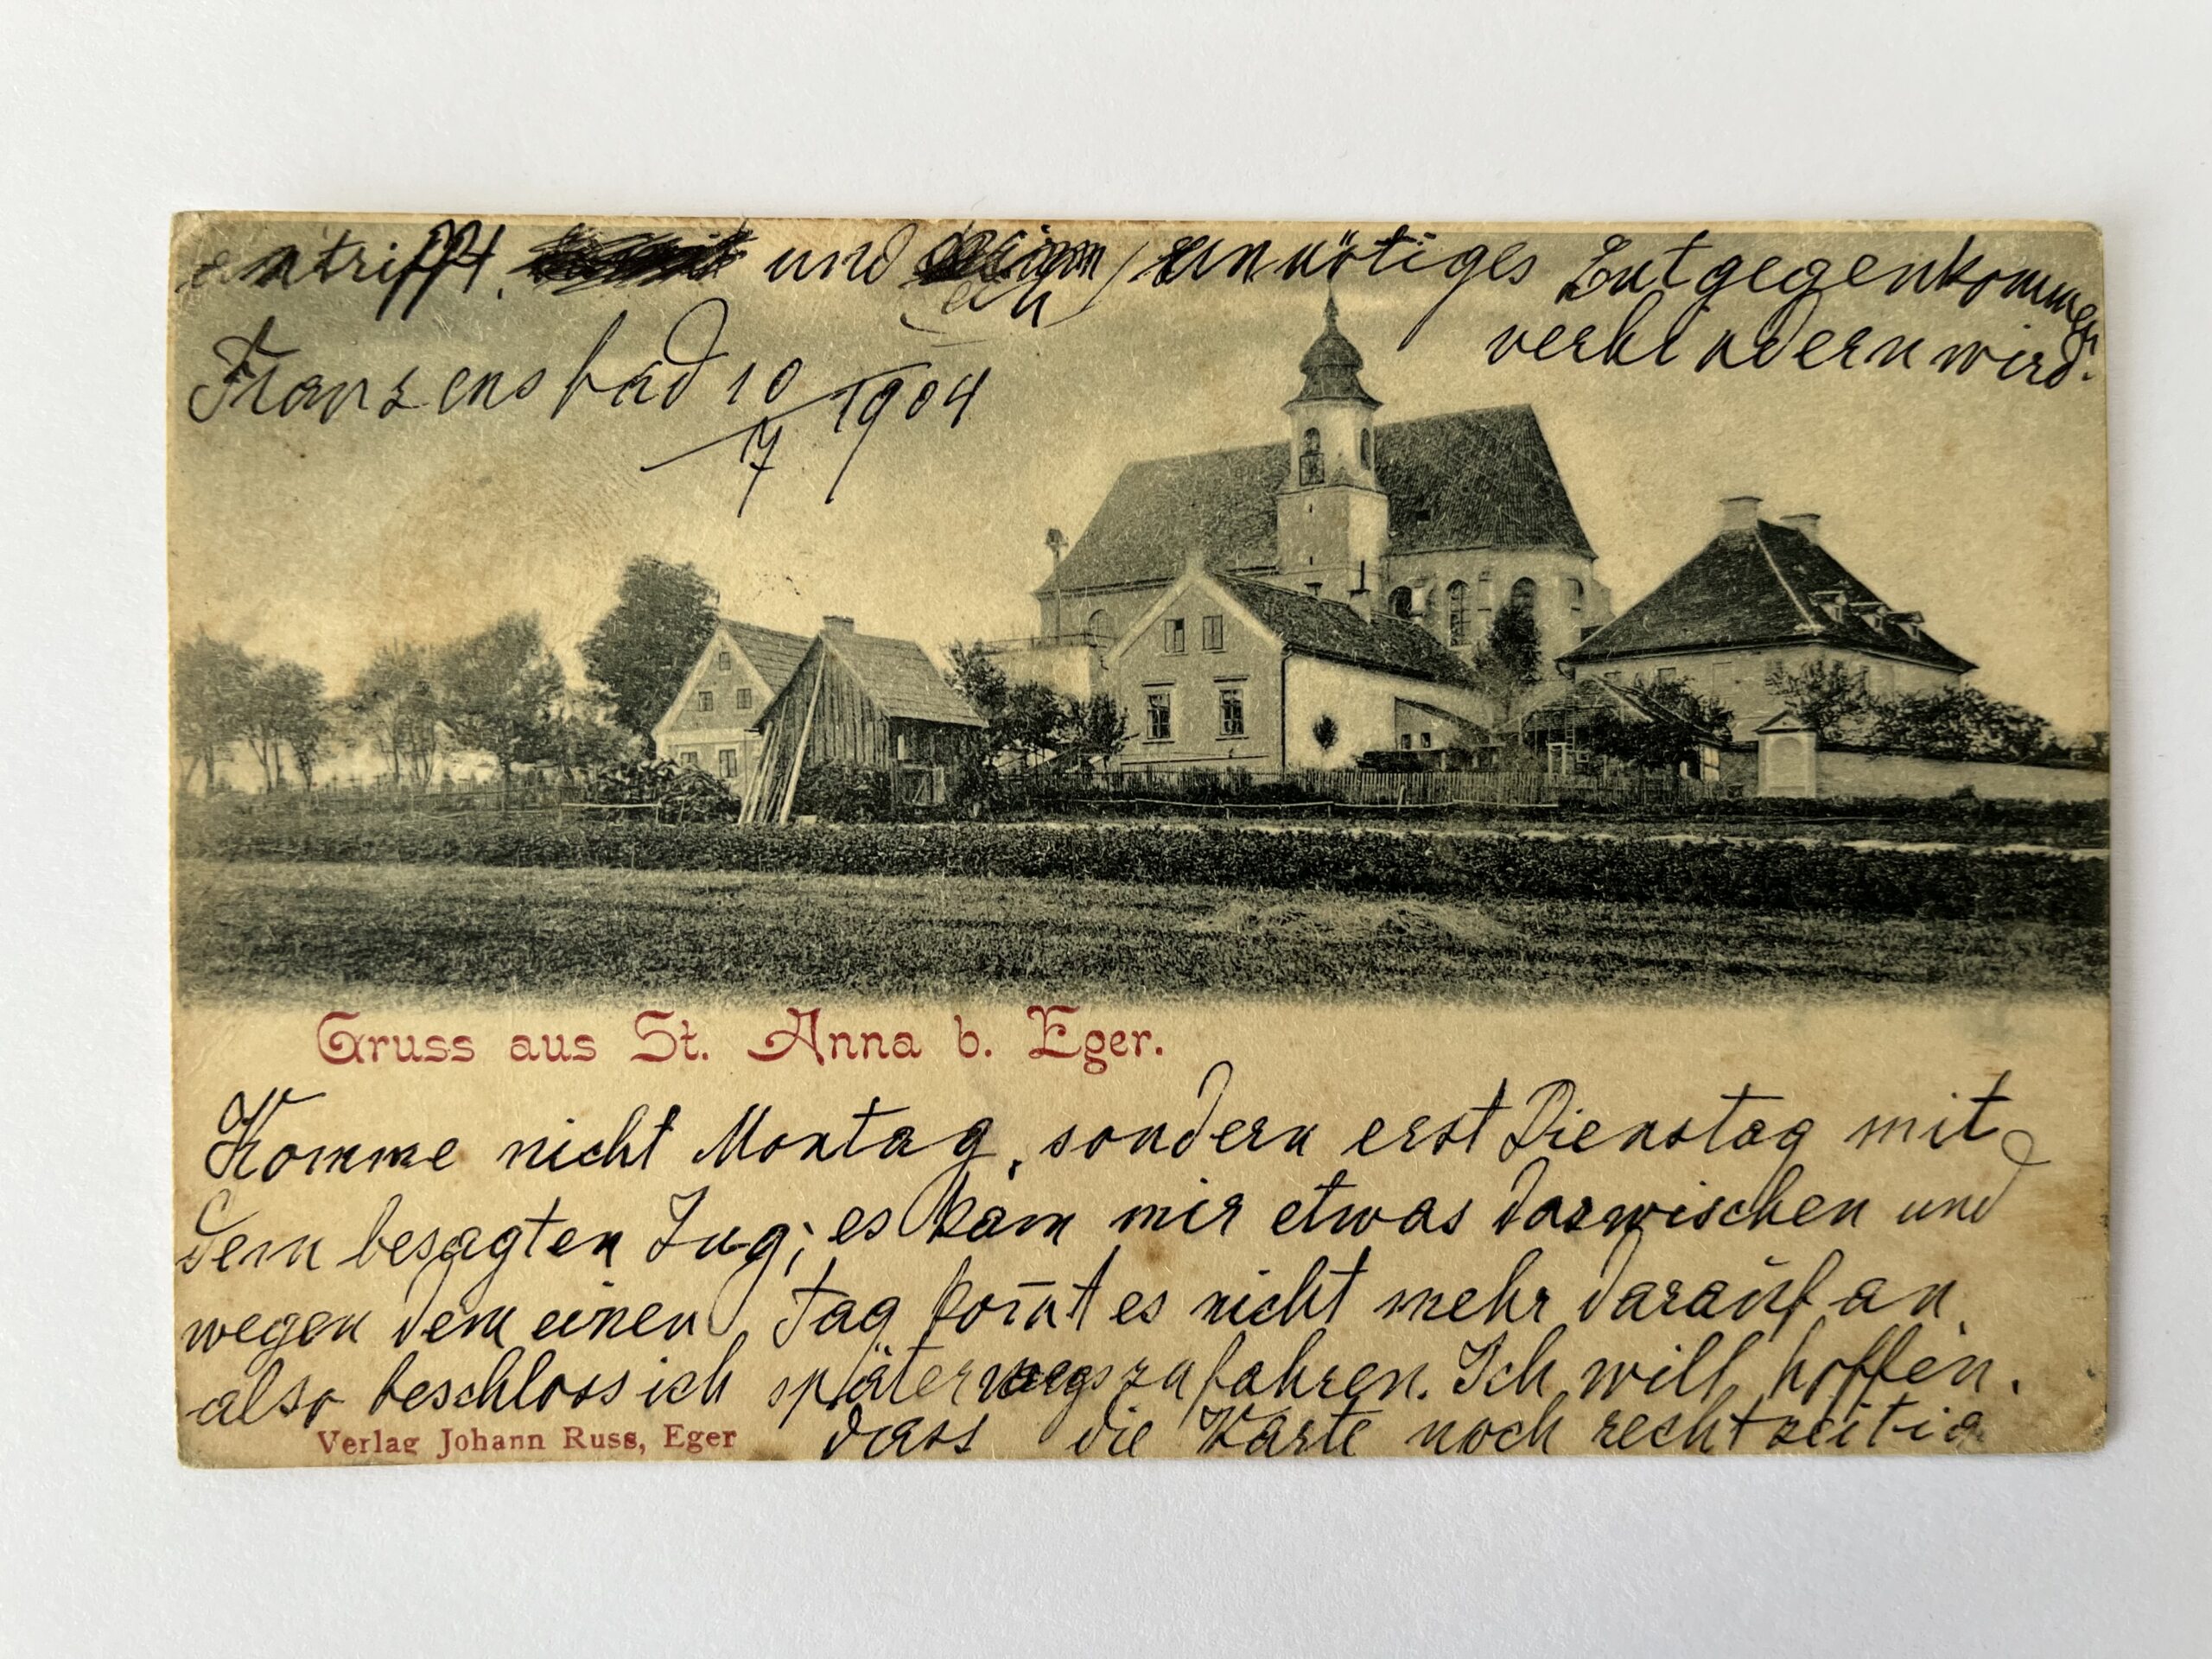 eintrifft, und ein unnötiges Entgegenkommen
verhindern wird.
Franzensbad 10/7 1904
Gruss aus St. Anna b. Eger.
Komme nicht Montag, sondern erst Dienstag mit
dem besagten Zug; es kam mir etwas dazwischen und
wegen dem einen Tag kom̄t es nicht mehr darauf an,
also beschloss ich später wegzufahren. Ich will hoffen,
dass die Karte noch rechtzeitig
Verlag Johann Russ, Eger